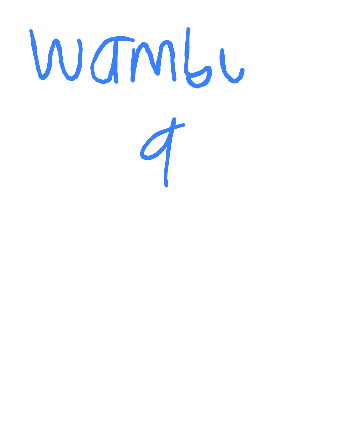 wambu
a